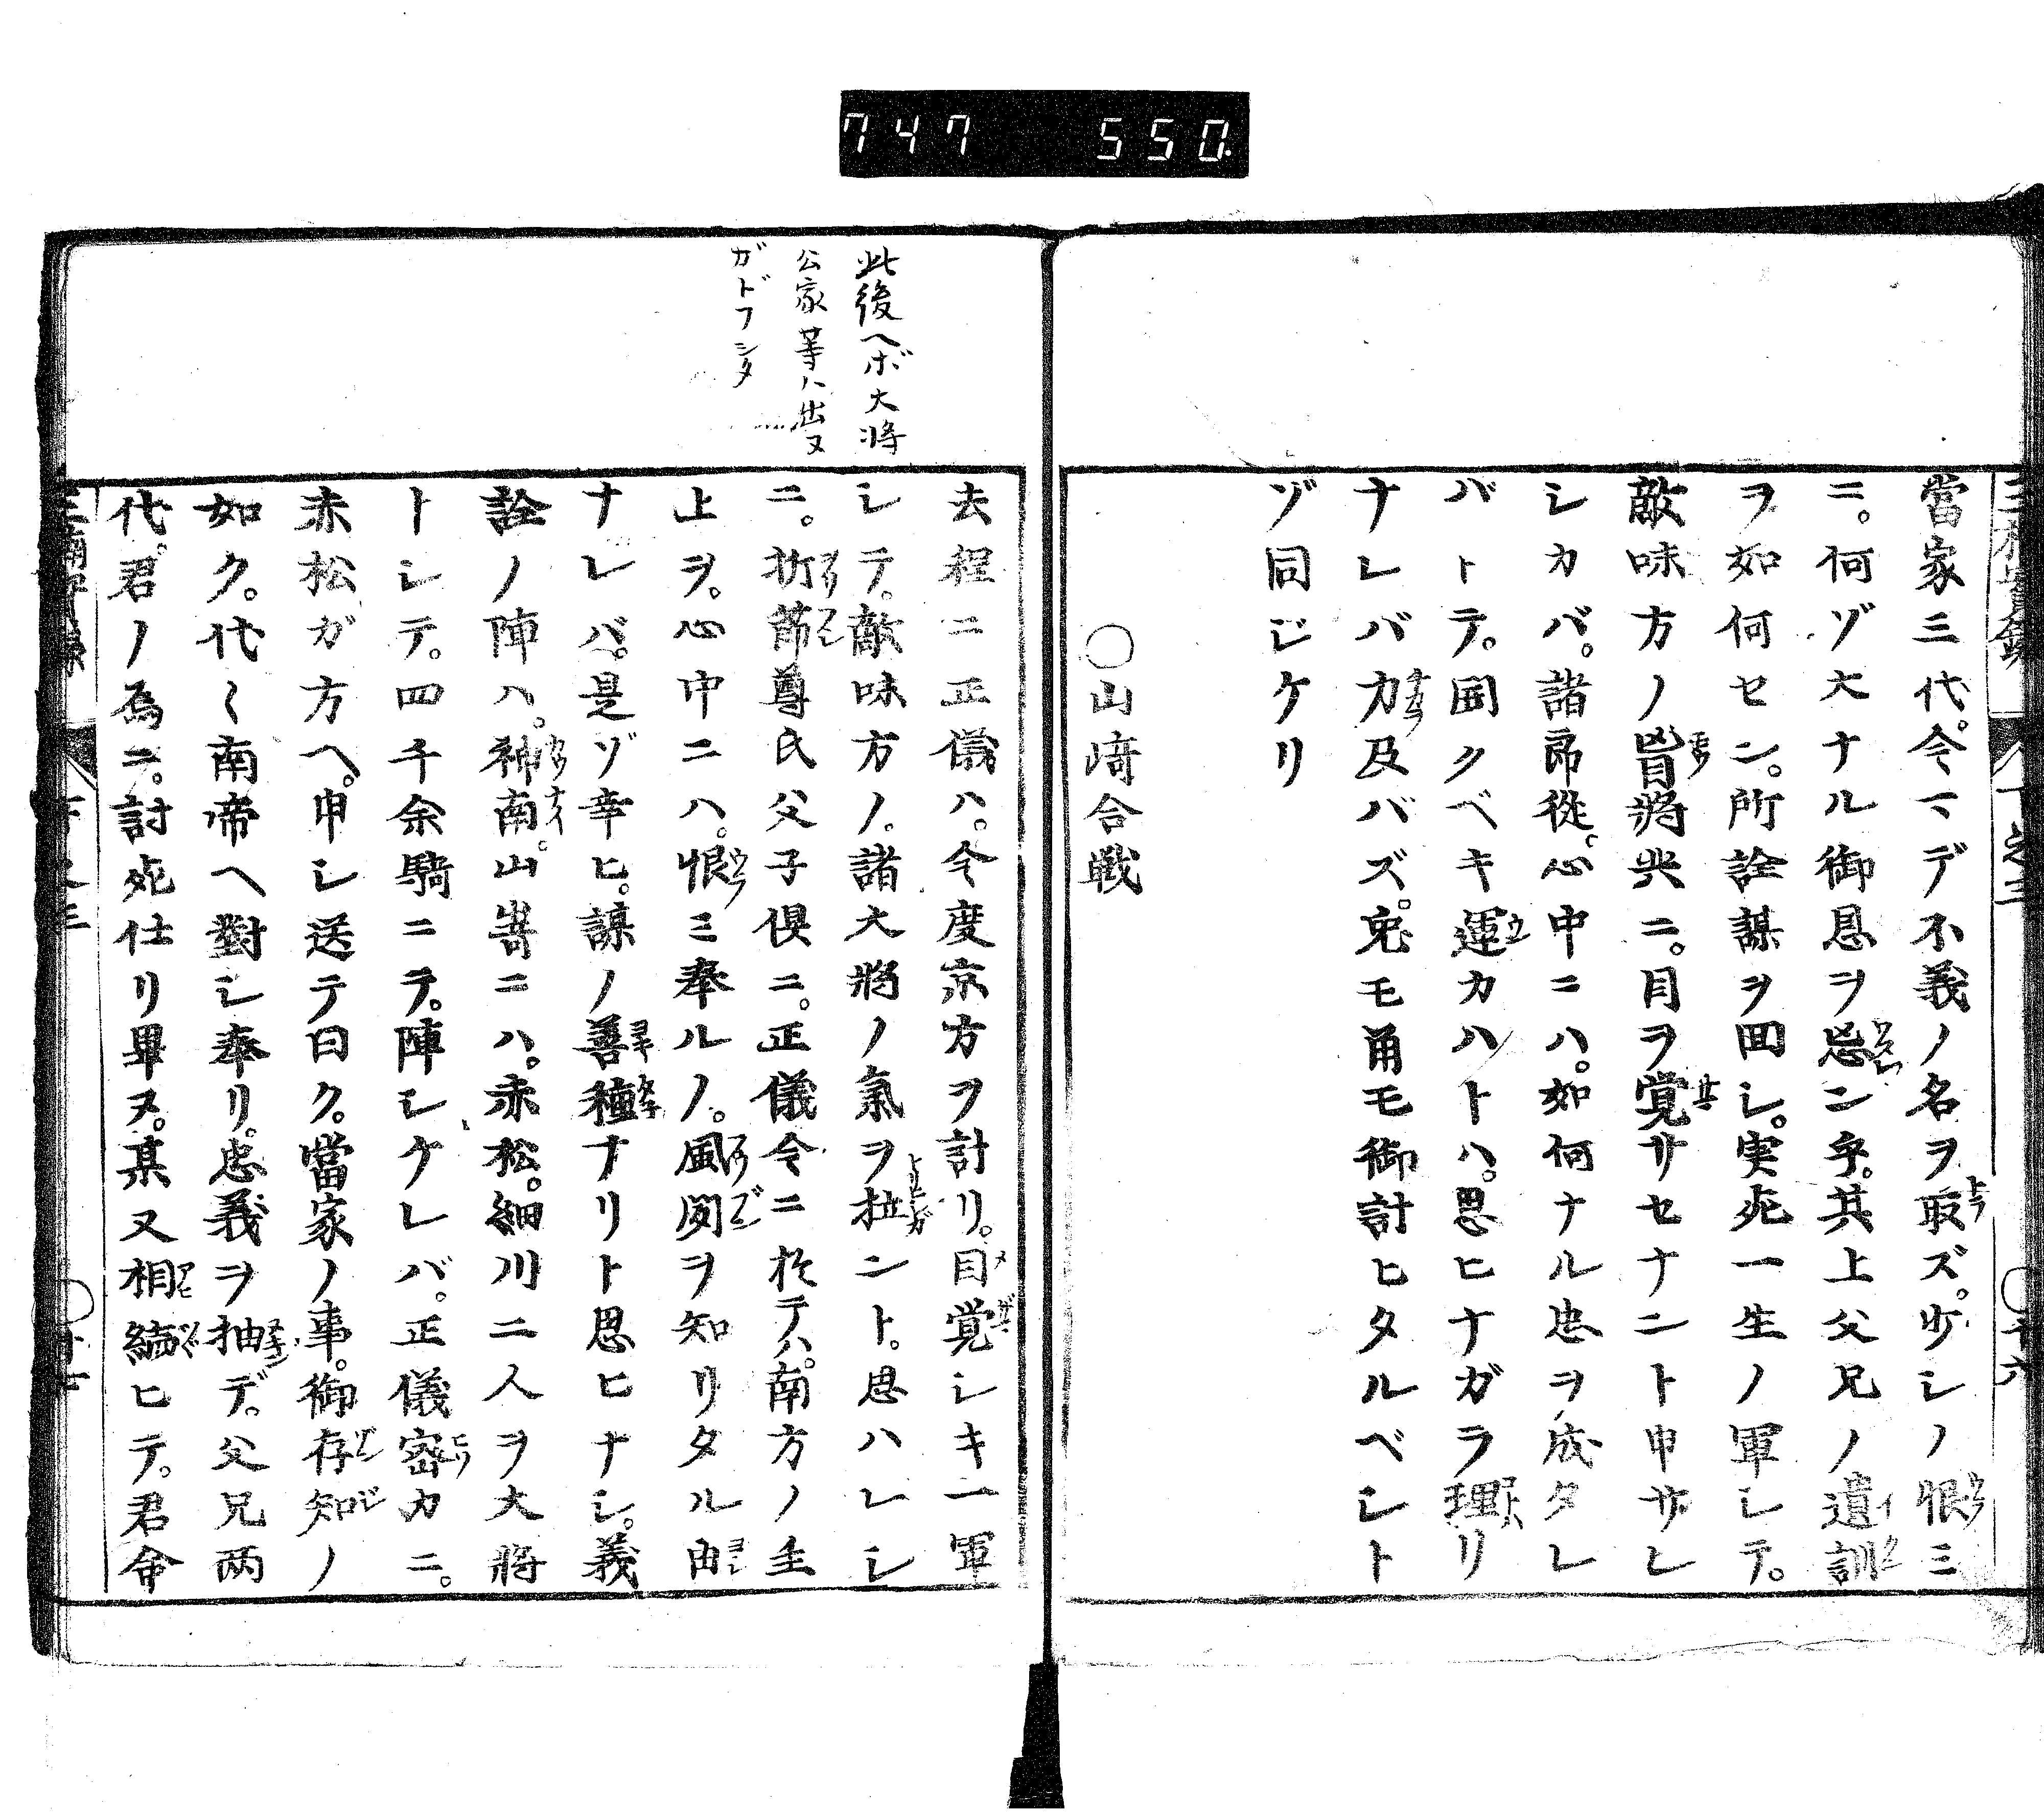 747 550.
當家三代。今マデ不義ノ名ヲ取ズ。少シノ恨ミ
ニ。何ゾ大ナル御恩ヲ忘ン乎。其上父兄ノ遺訓
ヲ如何セン。所詮謀ヲ回シ。実死一生ノ軍シテ。
敵味方ノ盲將共ニ。目ヲ覚サセナント申サレ
シカバ。諸郎從。心中ニハ。如何ナル忠ヲ成タレ
バトテ。囲クベキ運カハトハ。思ヒナガラ理リ
ナレバ力及バズ。兎モ甬モ御計ヒタルベシト
ゾ同じケリ
〇山﨑合戦
此後へボ大將
公家等ハ出ヌ
ガドフシタ
去程ニ正儀ハ。今度京方ヲ計リ。目覚シキ一軍
シテ。敵味方ノ。諸大將ノ氣ヲ拉ント。思ハレシ
ニ。折節尊氏父子倶ニ。正儀令ニ於テハ。南方ノ主
上ヲ。心中ニハ。恨ミ奉ルノ。風聞ヲ知リタル由
ナレバ。是ゾ幸ヒ。謀ノ善種ナリト思ヒナシ。義
詮ノ陣ハ。神南。山嵜ニハ。赤松。細川二人ヲ大將
トシテ。四千余騎ニテ。陣シケレバ。正儀密カニ。
赤松ガ方ヘ。申シ送テ曰ク。當家ノ事。御存知ノ
如ク。代〱南帝ヘ對シ奉リ。忠義ヲ抽デ。父兄両
代。君ノ為ニ。討死仕リ畢ヌ。某又相續ヒテ。君命